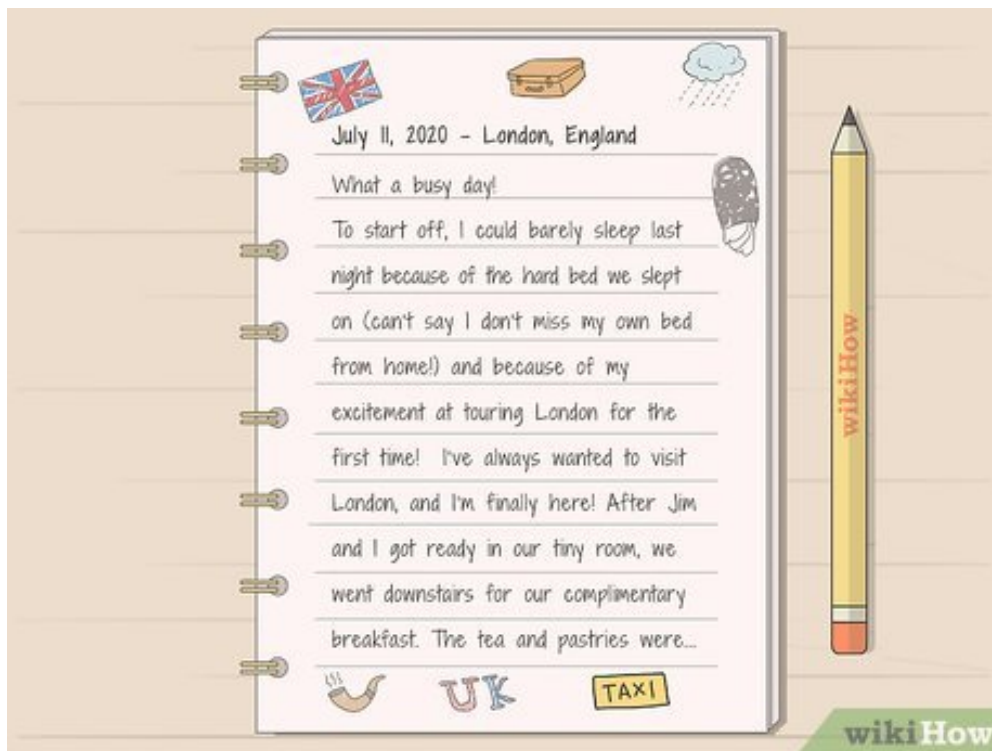 July 11, 2020 - London, England
What a busy day!
To start off, I could barely sleep last
night because of the hard bed we slept
on (can't say I don't miss my own bed
from home!) and because of my
excitement at touring London for the
first time! I've always wanted to visit
London, and I'm finally here! After Jim
and I got ready in our tiny room, we
went downstairs for our complimentary
breakfast. The tea and pastries were...
UK
TAXI
wikiHow
wikiHow